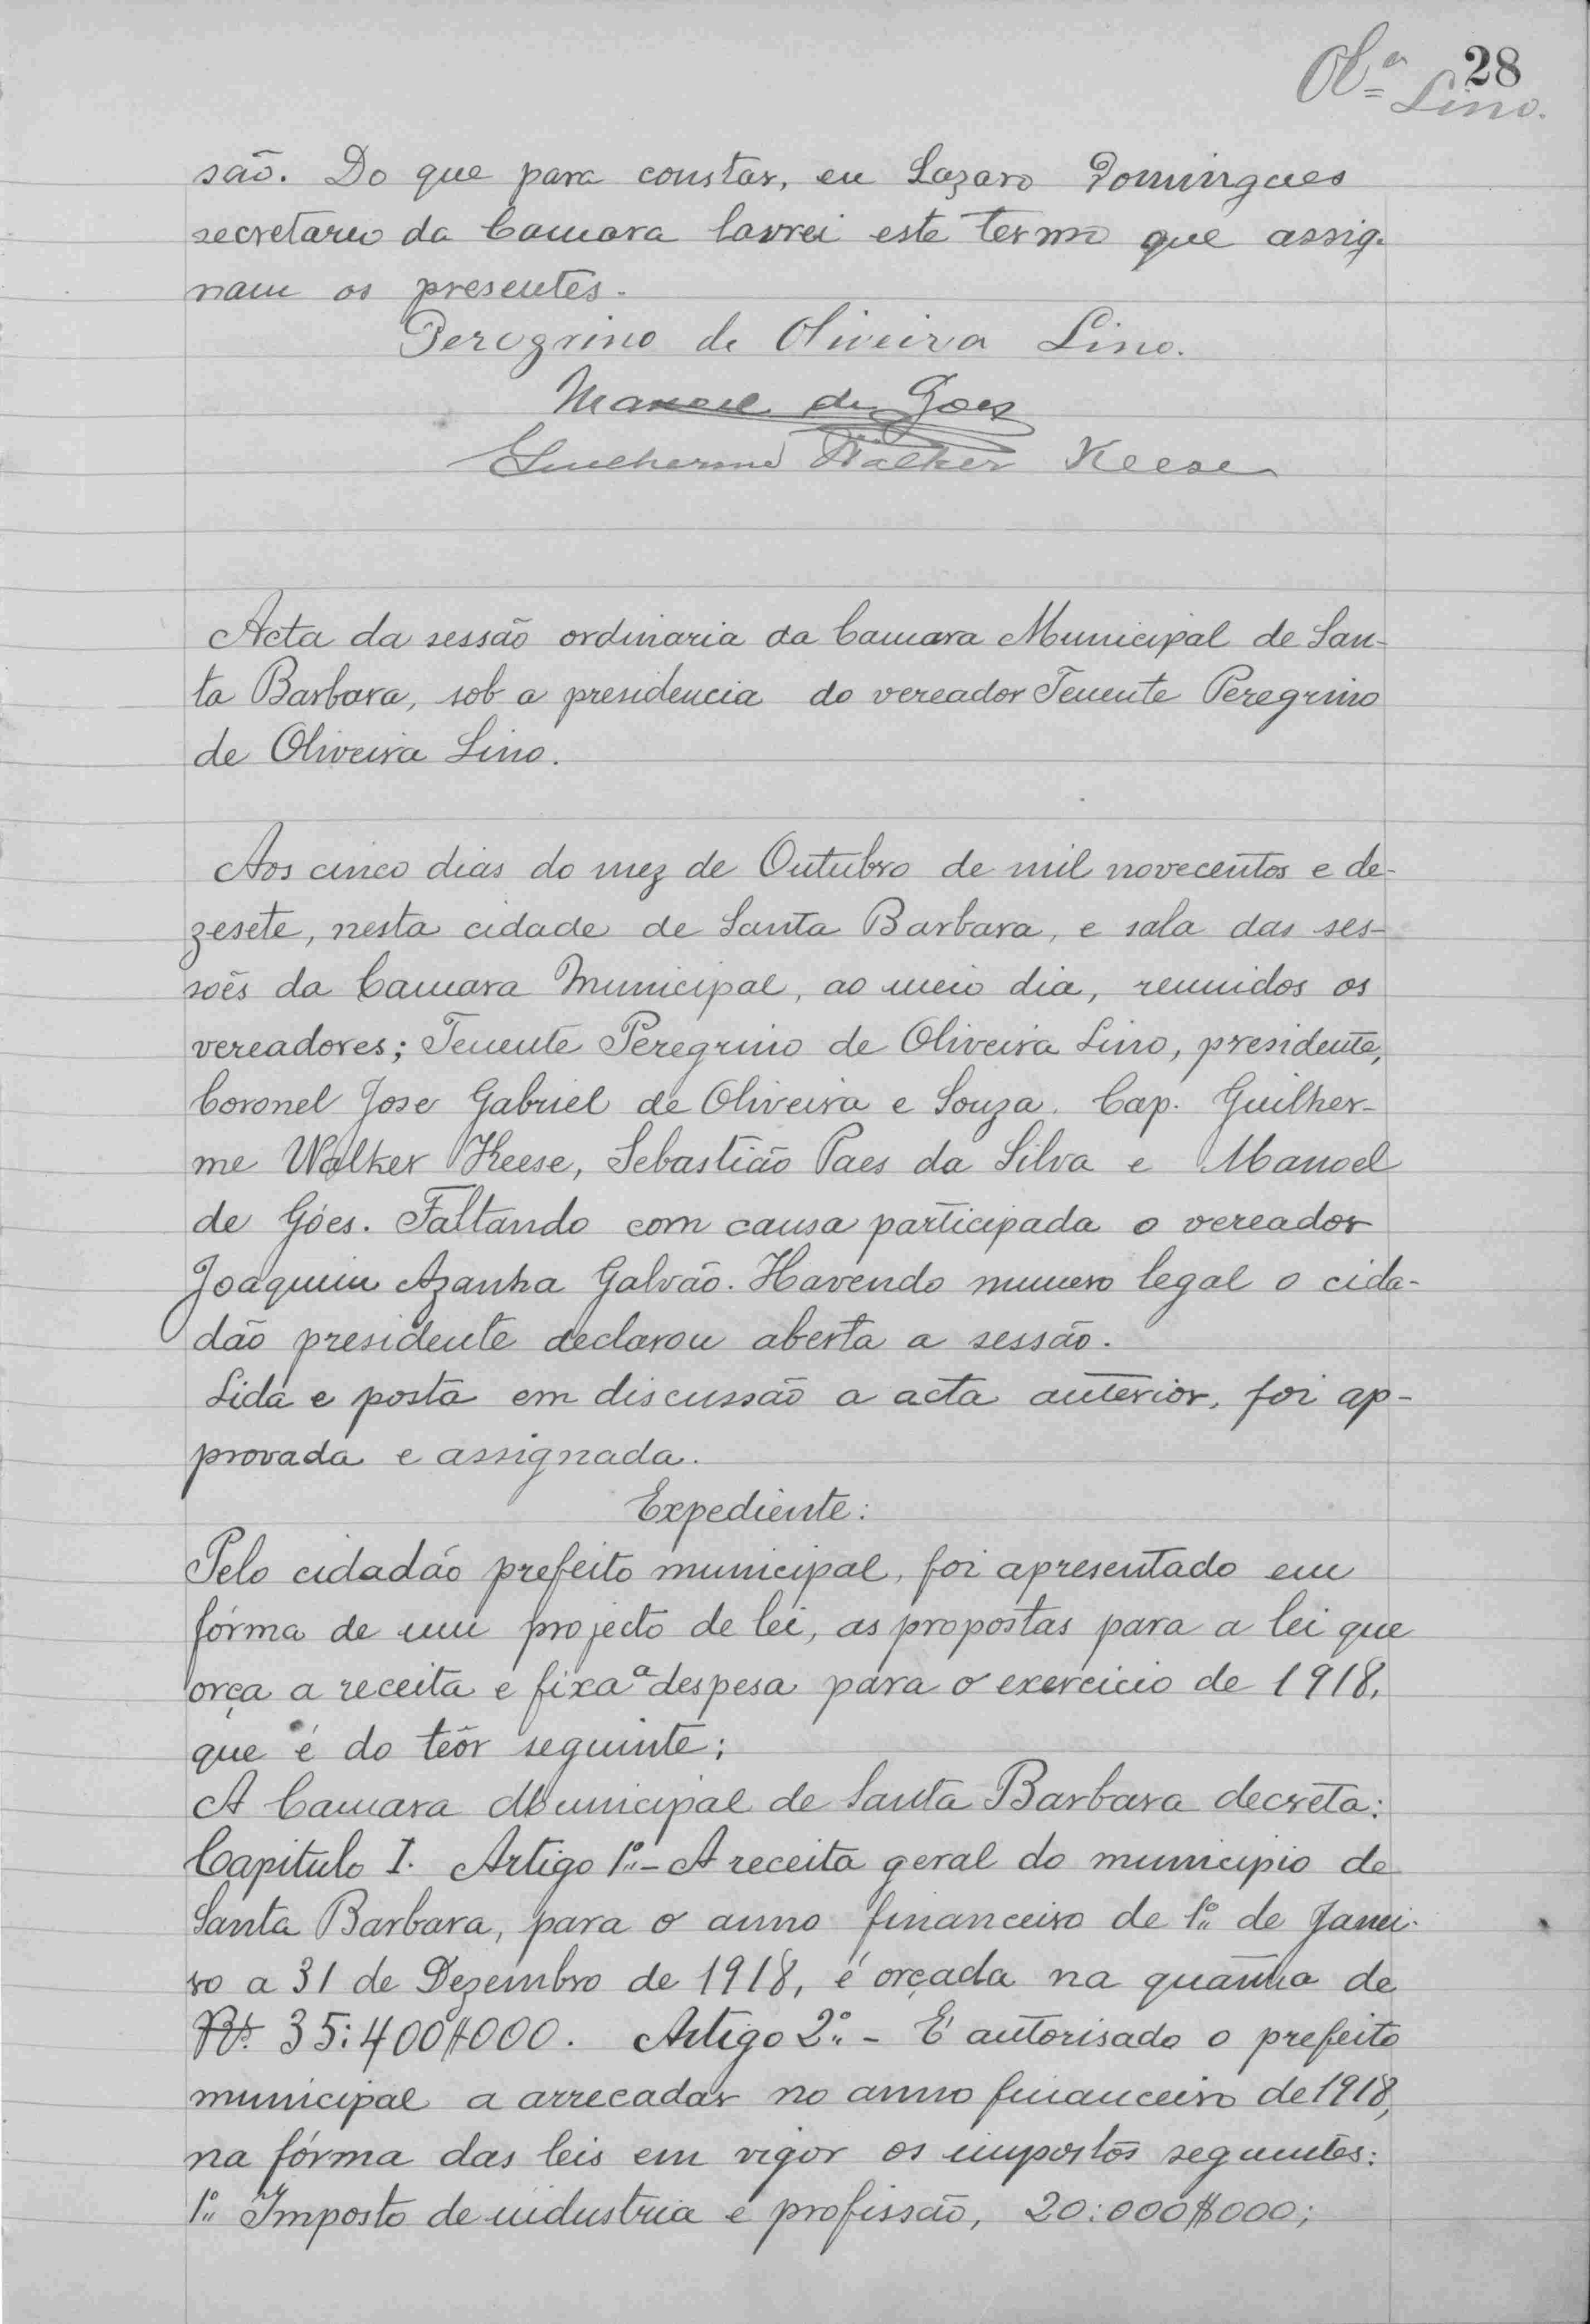 28
Olª Lino.
são. Do que para constar, eu Lazaro Domingues
secretario da Camara lavrei este termo que assig-
nam os presentes.
Peregrino de Oliveira Lino.
Manoel de Goes
Guilherme Walker Keese
Acta da sessão ordinaria da Camara Municipal de San-
ta Barbara, sob a presidencia do vereador Tenente Peregrino
de Oliveira Lino.
Aos cinco dias do mez de Outubro de mil novecentos e de-
zesete, nesta cidade de Santa Barbara, e sala das ses-
sões da Camara Municipal, ao meio dia, reunidos os
vereadores; Tenente Peregrino de Oliveira Lino, presidente,
Coronel Jose Gabriel de Oliveira e Souza. Cap. Guilher-
me Walker Keese, Sebastião Paes da Silva e Manoel
de Góes. Faltando com causa participada o vereador
Joaquim Azanha Galvão. Havendo numero legal o cida-
dão presidente declarou aberta a sessão.
Lida e posta em discussão a acta anterior, foi ap-
provada e assignada.
Expediente:
Pelo cidadão prefeito municipal, foi apresentado em
fórma de um projecto de lei, as propostas para a lei que
orça a receita e fixa a despesa para o exercicio de 1918,
que é do teôr seguinte;
A Camara Municipal de Santa Barbara decreta:
Capitulo I. Artigo 1º - A receita geral do municipio de
Santa Barbara, para o anno financeiro de 1º de Janei-
ro a 31 de Dezembro de 1918, é orçada na quantia de
Rs. 35:400$000. Artigo 2º - É autorisado o prefeito
municipal a arrecadar no anno financeiro de 1918,
na fórma das leis em vigor os impostos seguintes:
1º Imposto de industria e profissão, 20:000$000;